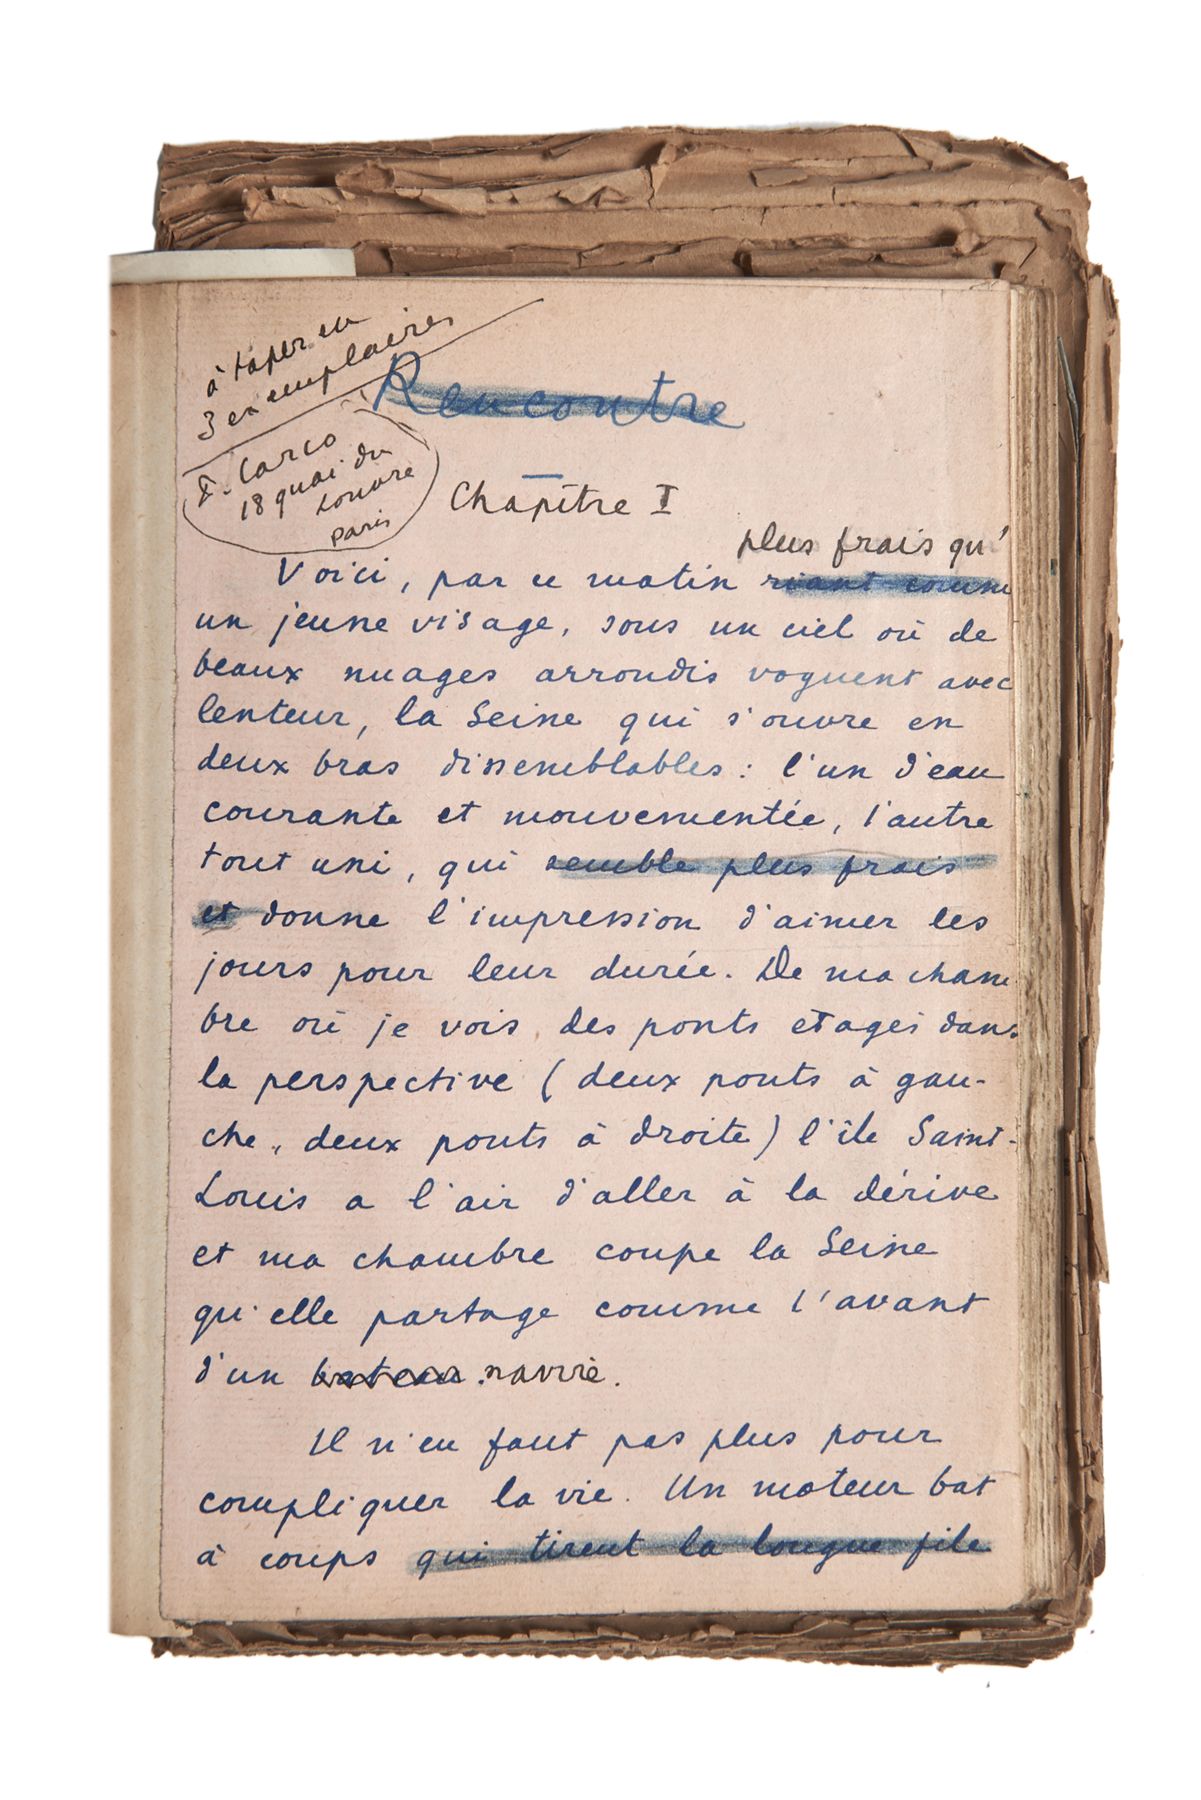 à taper en
3 exemplaires
F. Carco
18 quai du
Louvre
Paris
Rencontre
Chapître I
plus frais qu'
Voici, par ce matin riant comme
un jeune visage, sous un ciel où de
beaux nuages arrondis voguent avec
lenteur, la Seine qui s'ouvre en
deux bras dissemblables : l'un d'eau
courante et mouvementée, l'autre
tout uni, qui semble plus frais
et donne l'impression d'aimer les
jours pour leur durée. De ma cham
bre où je vois des ponts etagés dans
la perspective (deux ponts à gau-
che, deux ponts à droite) l'île Saint-
Louis a l'air d'aller à la dérive
et ma chambre coupe la Seine
qu'elle partage comme l'avant
d'un bateau. navire.
Il n'en faut pas plus pour
compliquer la vie. Un moteur bat
à coups qui tirent la longue file